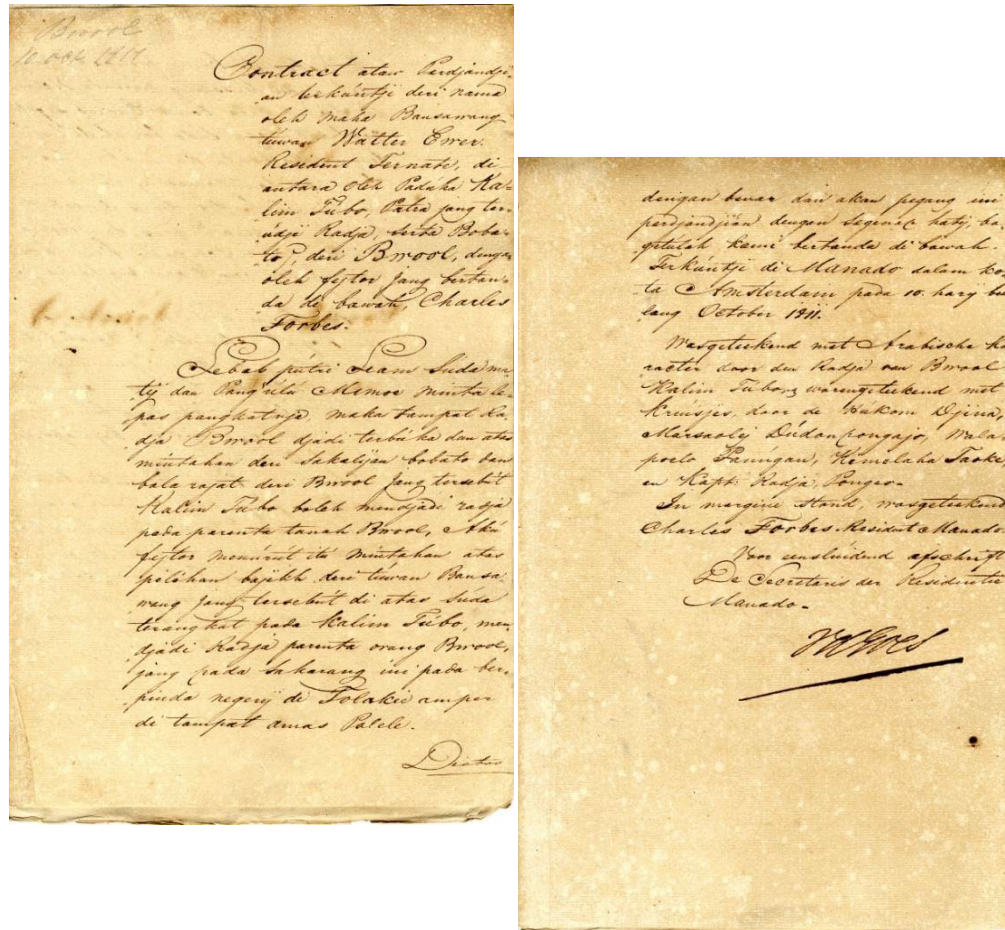 Bwool
10 Oct 1811
Contract ataw Perdjandji-
an terkúntji deri nama
oleh maha Bansawang
tuwan Walter Ewer.
Resident Ternate, di
antara oleh Padúka Ka-
lim Túbo, Putra jang ter-
údji Radja, serta Boba-
to, deri Bwool, dengan
oleh fejtor jang bertan-
da di bawah, Charles
Forbes.
Sebab putri Leam súda ma-
tij dan Pangúlú Memoe minta le-
pas pangkatnja, maka tampat Ra-
dja Bwool djadi terbúka dan atas
mintahan deri sakalijan bobato dan
bala rajat deri Bwool jang tersebut
Kalim Túbo boleh mendjadi radja
pada parenta tanah Bwool, Akú
fejtor menúrut itú mintahan atas
pilihan bajikh deri tuwan Bansa-
wang jang tersebut di atas súda
terangkat pada Kalim Túbo, men-
djadi Radja parenta orang Bwool,
jang pada sakarang ini pada ber-
pinda negerij di Tolakie amper
di tampat amas Palele.
dengan benar dan akan pegang ini
perdjandjian dengan segenap hatij, ba-
getulah kami bertanda di bawah.
Terkúntji di Manado dalam ko-
ta Amsterdam pada 10. harij bu-
lang October 1811.
Wasgeteekend met Arabische ka-
racter door den Radja van Bwool
Kalim Tubo, waren geteekend met
kruisjes, door de Húkom Djina,
Marsaolij Dúdonpongajo, Wala-
poelo Panigan, Kemelaha Taoke
en Kapt: Radja, Pongeo.
In margine stond, wasgeteekend
Charles Forbes Resident Manado.
Voor eensluidend afschrift
De Secretaris der Residentie
Manado.